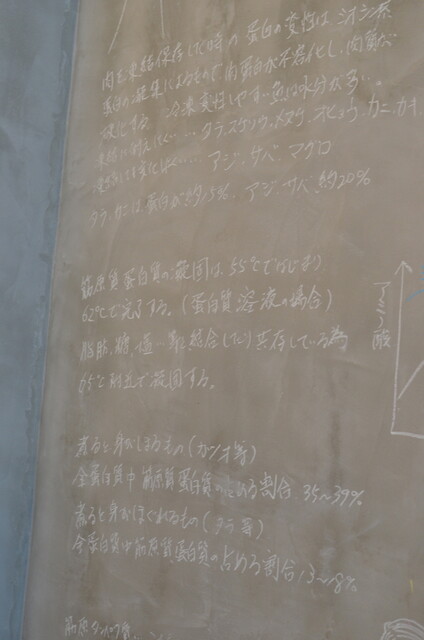 肉を凍結保存した時の蛋白の変性はミオシン系
蛋白の凝集によるもので肉蛋白が不溶化し、肉質が
硬化する。冷凍変性しやすい魚は水分が多い。
凍結に耐えにくい……タラ、スケソウ、メヌケ、オヒョウ、カニ、カキ
……アジ、サバ、マグロ
タラ、カニは蛋白が約15%、アジ、サバ、約20%
筋原質蛋白質の凝固は、55℃ではじまり
62℃で完了する。(蛋白質溶液の場合)
脂肪、糖、塩等と結合したり共存している為
65℃附近で凝固する。
煮ると身がしまるもの(カツオ等)
全蛋白質中筋原質蛋白質のしめる割合 35〜39%
煮ると身がほぐれるもの(タラ等)
全蛋白質中筋原質蛋白質の占める割合13〜18%
筋原タンパク質
アミノ酸